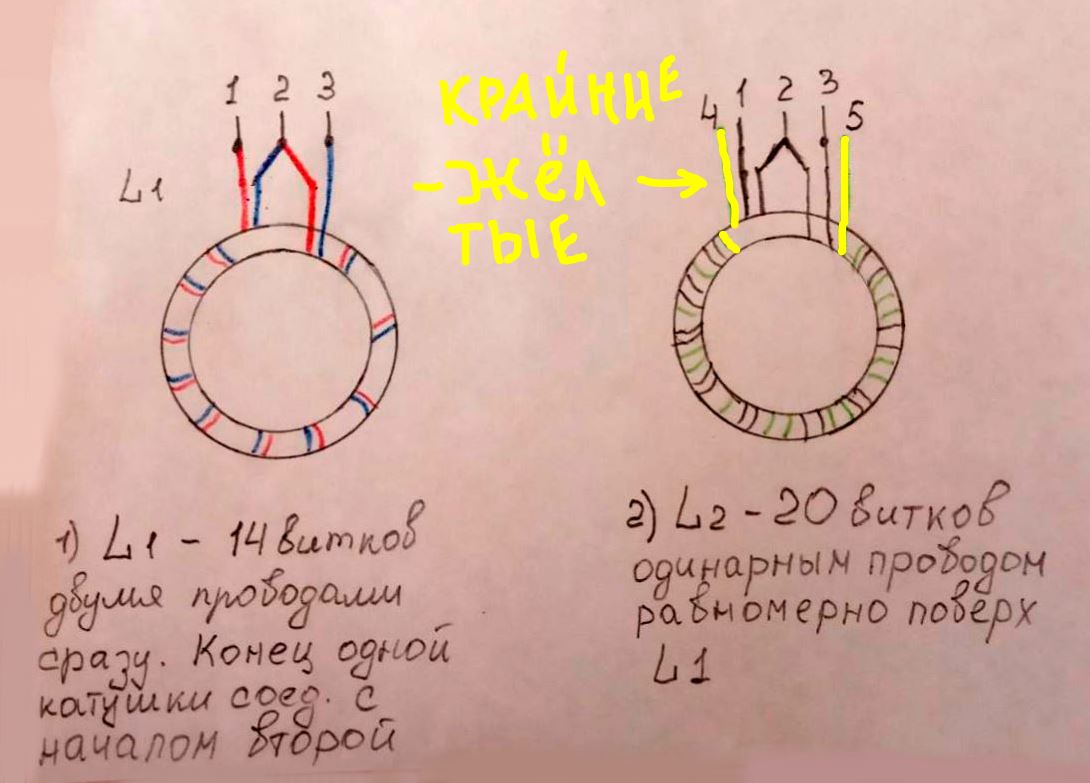 1 2 3
L1
КРАЙНИЕ
-ЖЁЛ
ТЫЕ
4 1 2 3 5
1) L1 - 14 витков
двумя проводами
сразу. Конец одной
катушки соед. с
началом второй
2) L2 - 20 витков
одинарным проводом
равномерно поверх
L1